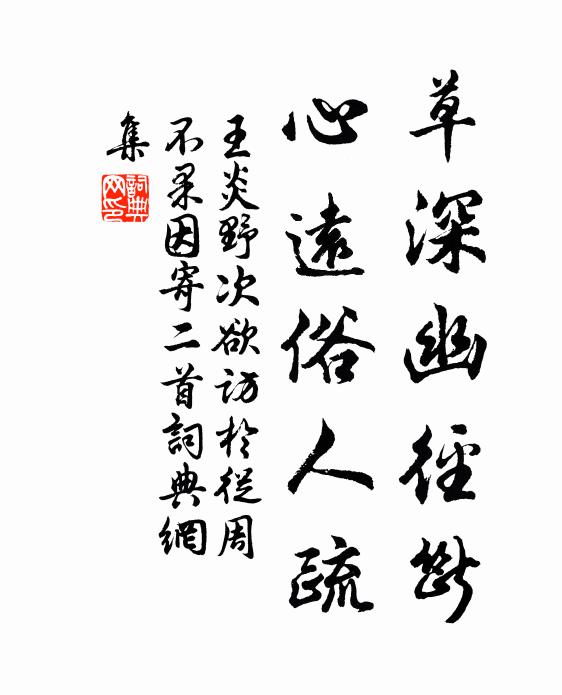 草深幽徑斷
心遠俗人疏
王炎野次欲訪於從周
不果因寄二首詞典網
集
詞典
网印